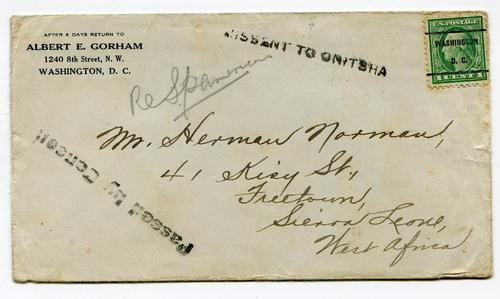 AFTER 5 DAYS RETURN TO
ALBERT E. GORHAM
1240 8th Street, N. W.
WASHINGTON, D. C.
MISSENT TO ONITSHA
U.S. POSTAGE
WASHINGTON
D. C.
1 CENTS 1
Re
Mr. Herman Norman,
41 Kisy St.,
Freetown,
Sierra Leone,
West Africa.
Passed by Censor